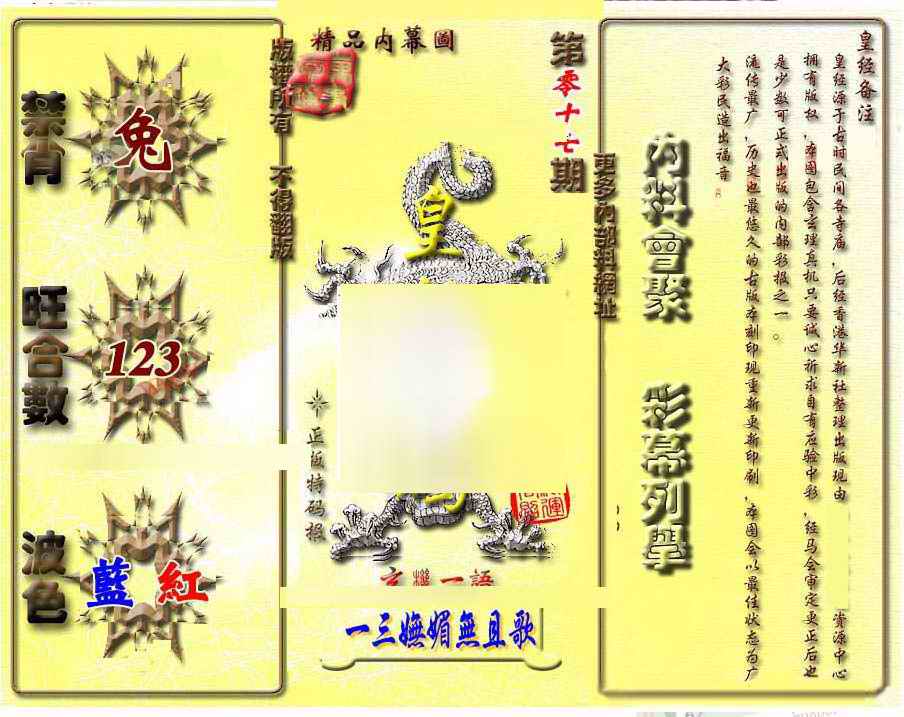 精品内幕圖
第零十七期
版權所有 不得翻版
更多內部料網址
禁肖
兔
旺合數
123
波色
藍 紅
皇
正版特码报
玄機一語
一三嫵媚無且歌
內料會聚 彩幕列舉
皇经备注
皇经源于古时民间各寺庙，后经香港华新社整理出版现由
资源中心
拥有版权，本图包含玄理真机只要诚心祈求自有应验中彩，经马会审定更正后也
是少数可正式出版的内部彩报之一。
流传最广，历史也最悠久的古版本刻印现重新更新印刷，本图会以最佳状态为广
大彩民造出福音